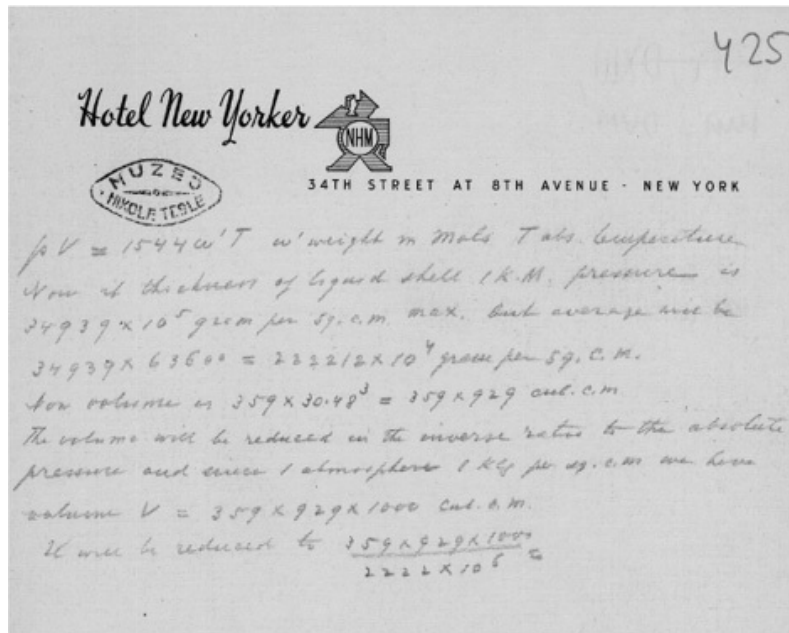 425
Hotel New Yorker
NHM
34TH STREET AT 8TH AVENUE · NEW YORK
MUZEJ
NIKOLE TESLE
pV = 1544 w' T w' weight in Mols T abs. temperature
Now if thickness of liquid shell 1 K.M. pressure is
34939 × 10⁵ gram per sq. c.m. max. but average will be
34939 × 63600 = 222212 × 10⁴ gram per sq. c.m.
Now volume is 359 × 30.48³ = 359 × 929 cub. c.m
The volume will be reduced in the inverse ratio to the absolute
pressure and since 1 atmosphere 1 Kg per sq. c.m we have
volume V = 359 × 929 × 1000 cub. c.m.
It will be reduced to 359 × 929 × 1000
2222 × 10⁶ =